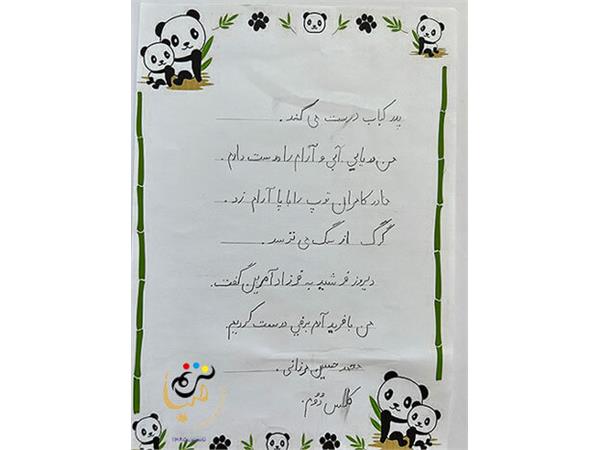 پدر کباب درست می کند.
من دریایی آبی و آرام را دوست دارم.
مادر کامران توپ را با پا آرام زد.
گرگ از سگ می ترسد.
دیروز فرشید به فرزاد آفرین گفت.
من با فرید آدم برفی درست کردیم.
محمد حسین مرزانی.
کلاس دُوُم.